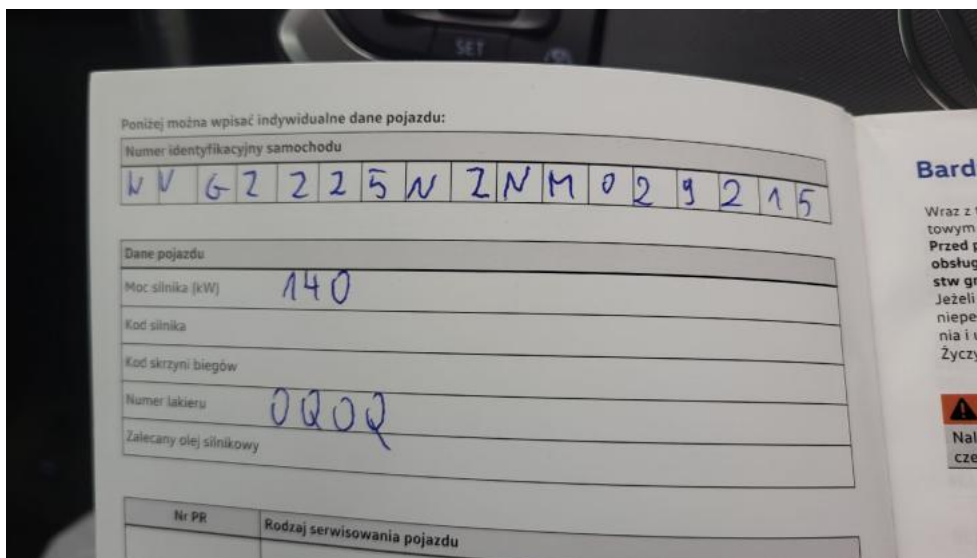 SET
Poniżej można wpisać indywidualne dane pojazdu:
Numer identyfikacyjny samochodu
W V G Z Z Z 5 N Z N M 0 2 9 2 1 5
Dane pojazdu
Moc silnika (kW) 140
Kod silnika
Kod skrzyni biegów
Numer lakieru 0Q0Q
Zalecany olej silnikowy
Nr PR Rodzaj serwisowania pojazdu
Bard
Wraz z
towym
Przed p
obsług
stw gr
Jeżeli
niepe
nia i
Życzy
Nal
cze